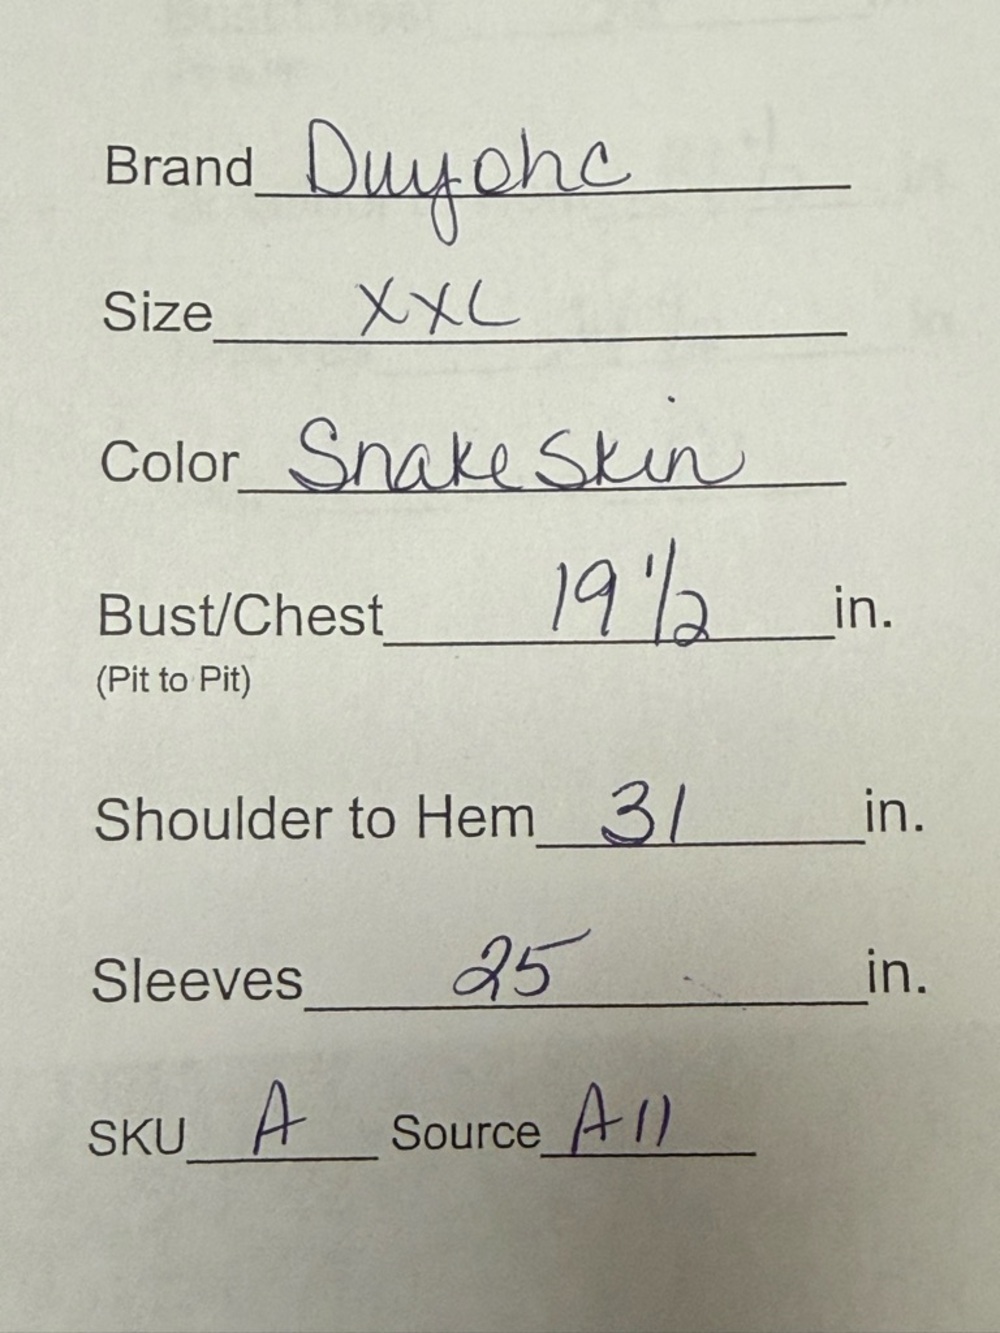 Brand Duyohc
Size XXL
Color Snake Skin
Bust/Chest 19 1/2 in.
(Pit to Pit)
Shoulder to Hem 31 in.
Sleeves 25 in.
SKU A Source A11